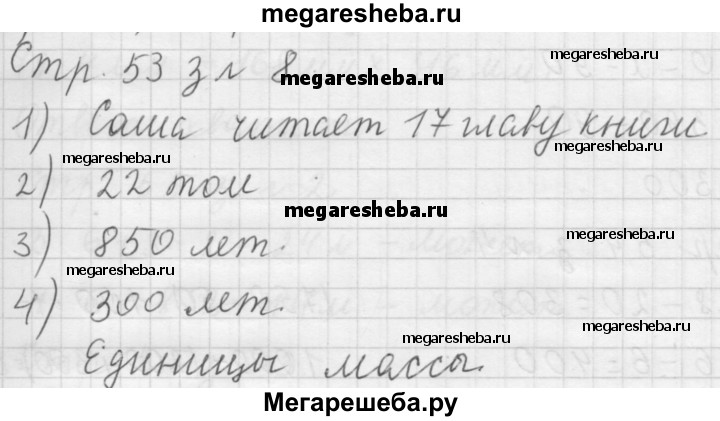 megaresheba.ru
Стр. 53 з л 8
megaresheba.ru
megaresheba.ru
1) Саша читает 17 главу книги
megaresheba.ru
megaresheba.ru
2) 22 том
megaresheba.ru
3) 850 лет.
megaresheba.ru
megaresheba.ru
4) 300 лет.
megaresheba.ru
megaresheba.ru
Единицы массы.
Мегарешеба.ру